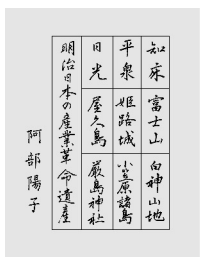 知床 富士山 白神山地
平泉 姫路城 小笠原諸島
日光 屋久島 厳島神社
明治日本の産業革命遺産
阿部陽子